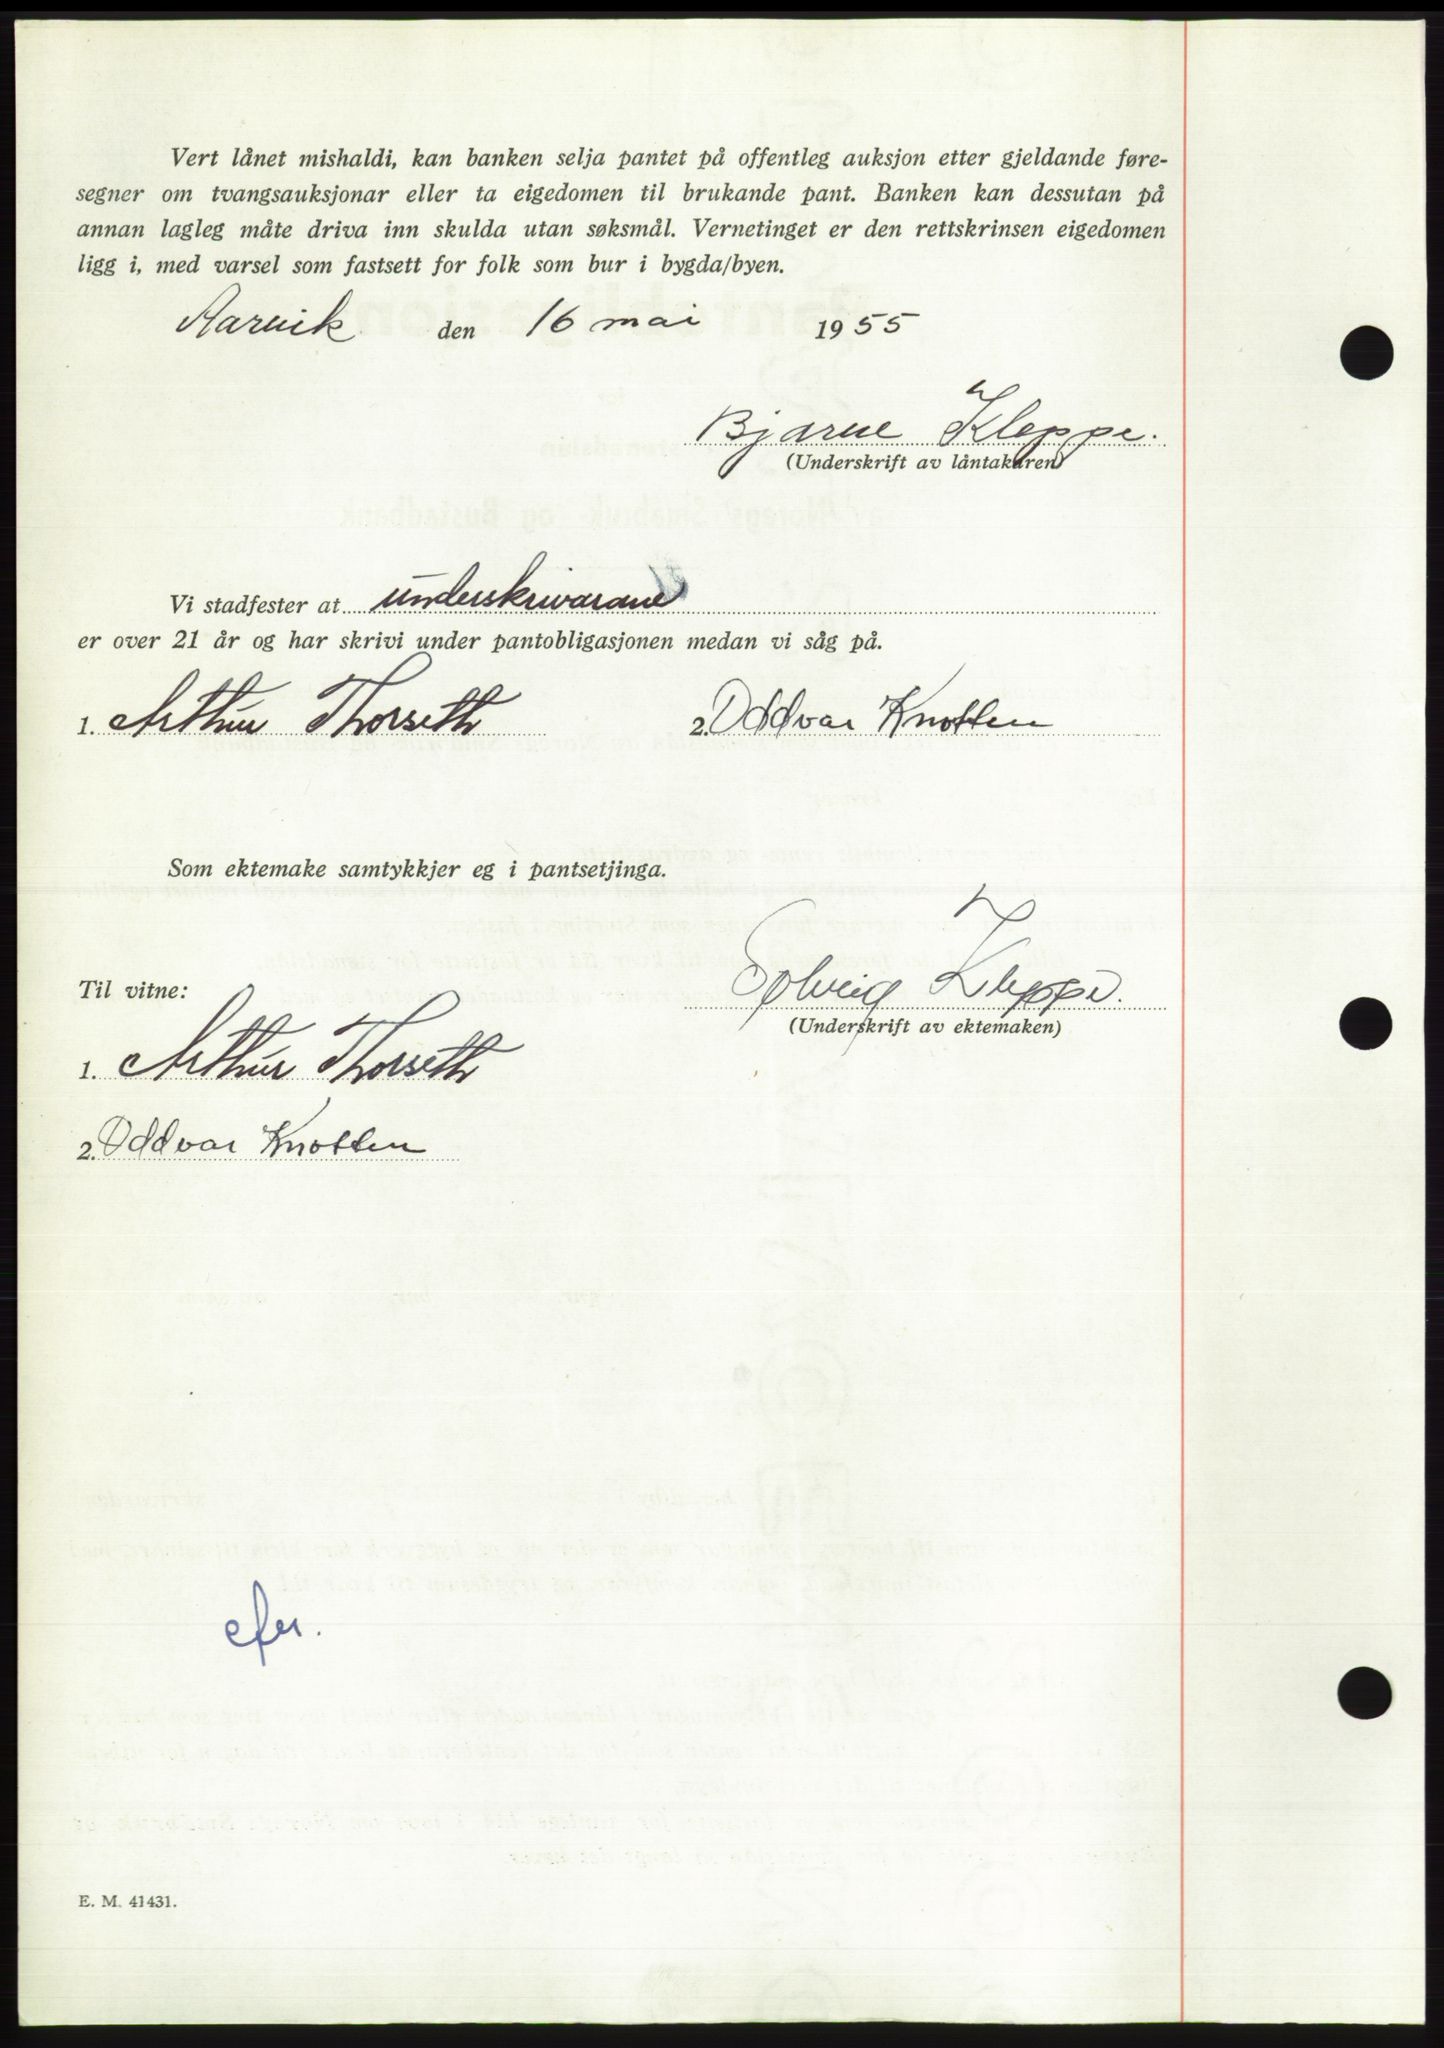 Vert lånet mishaldi, kan banken selja pantet på offentleg auksjon etter gjeldande føre-
segner om tvangsauksjonar eller ta eigedomen til brukande pant. Banken kan dessutan på
annan lagleg måte driva inn skulda utan søksmål. Vernetinget er den rettskrinsen eigedomen
ligg i, med varsel som fastsett for folk som bur i bygda/byen.
Aarvik den 16 mai 1955
Bjarne Kleppe.
(Underskrift av låntakaren)
Vi stadfester at underskrivarane
er over 21 år og har skrivi under pantobligasjonen medan vi såg på.
1. Arthur Thorseth 2. Oddvar Knotten
Som ektemake samtykkjer eg i pantsetjinga.
Solveig Kleppe.
Til vitne:
(Underskrift av ektemaken)
1. Arthur Thorseth
2. Oddvar Knotten
E. M. 41431.